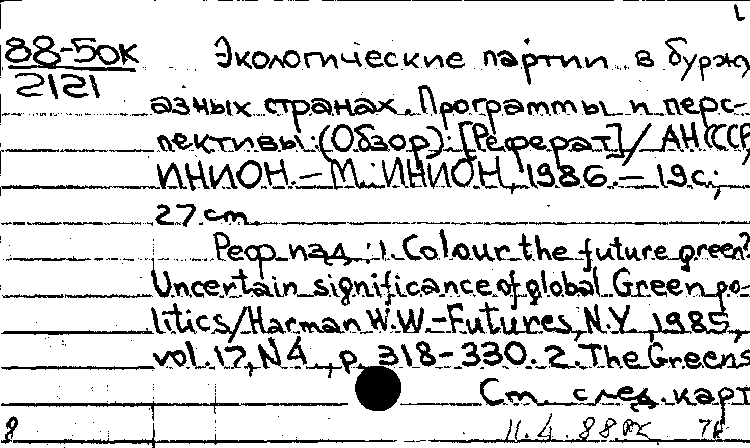 88-50к
2121
Экологические партии в буржу
азных странах. Программы и перс-
пективы: (Обзор): [Реферат] / АН СССР,
ИНИОН. - М.: ИНИОН, 1986. - 19с.;
27 см.
Реф. изд.: 1. Colour the future green?
Uncertain significance of global Green po-
litics/Harman W.W.-Futures, N.Y., 1985,
vol. 17, N4, p. 318-330. 2. The Greens
См. след. карт
8 11.4.88